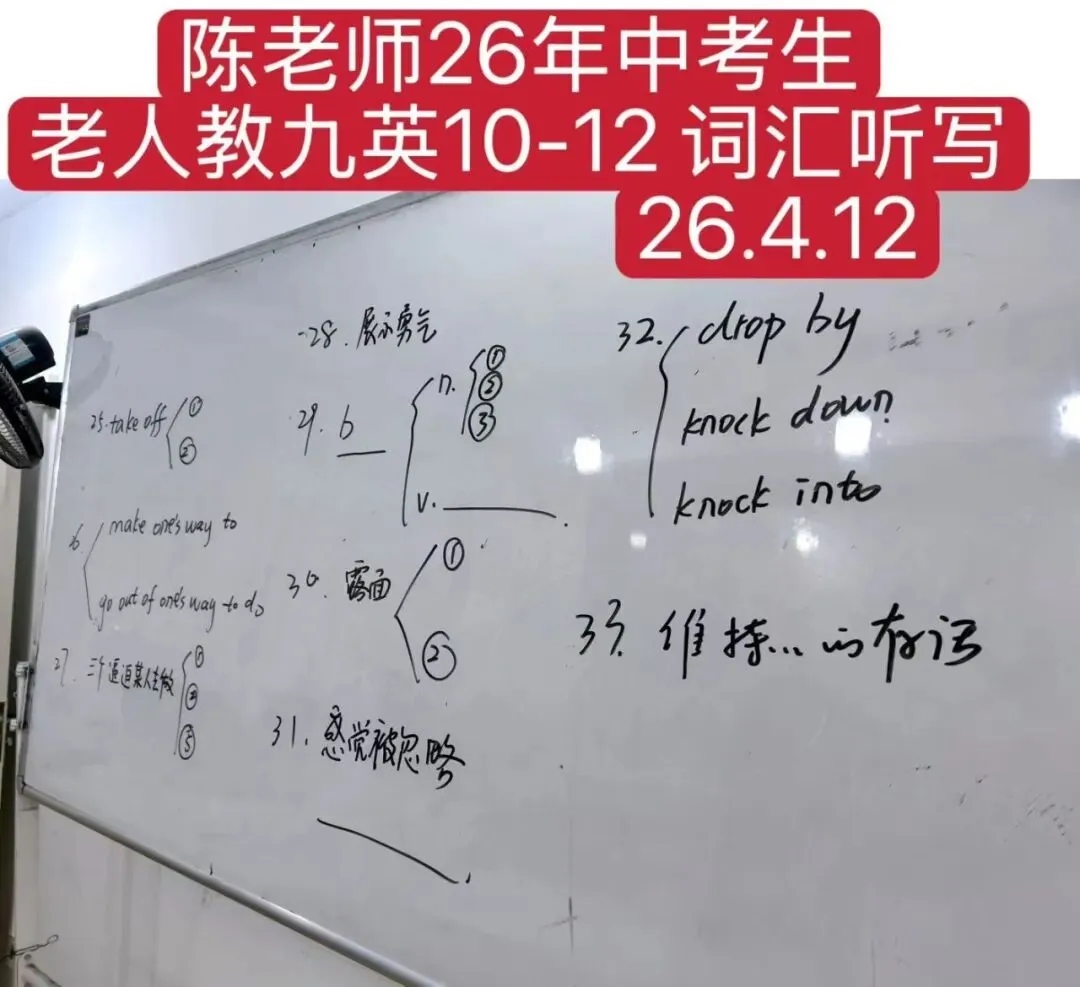 陈老师26年中考生
老人教九英10-12 词汇听写
26.4.12
25. take off ①
②
26. make one's way to
go out of one's way to do
27. 三个逼迫某人去做 ①
②
③
28. 展示勇气
29. b ___ n. ①
②
③
v. ______.
30. 露面 ①
②
31. 感觉被忽略
______.
32. drop by
knock down
knock into
33. 维持...的存活